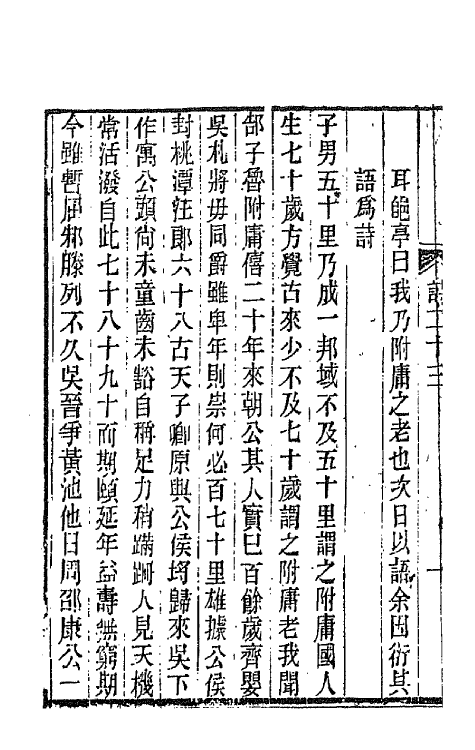 詩二十三
耳龅亭曰我乃附庸之老也次日以語余因衍其
語爲詩
子男五十里乃成一邦域不及五十里謂之附庸國人
生七十歲方覺古來少不及七十歲謂之附庸老我聞
郜子魯附庸僖二十年來朝公其人實巳百餘歲齊嬰
吳札將毋同爵雖卑年則崇何必百七十里雄據公侯
封桃潭汪郎六十八古天子卿原與公侯埒歸來吳下
作寓公頭尚未童齒未豁自稱足力稍蹣跚人見天機
常活潑自此七十八十九十而期頤延年益壽無窮期
今雖暫屈邾滕列不久吳晉爭黃池他日周邵康公一